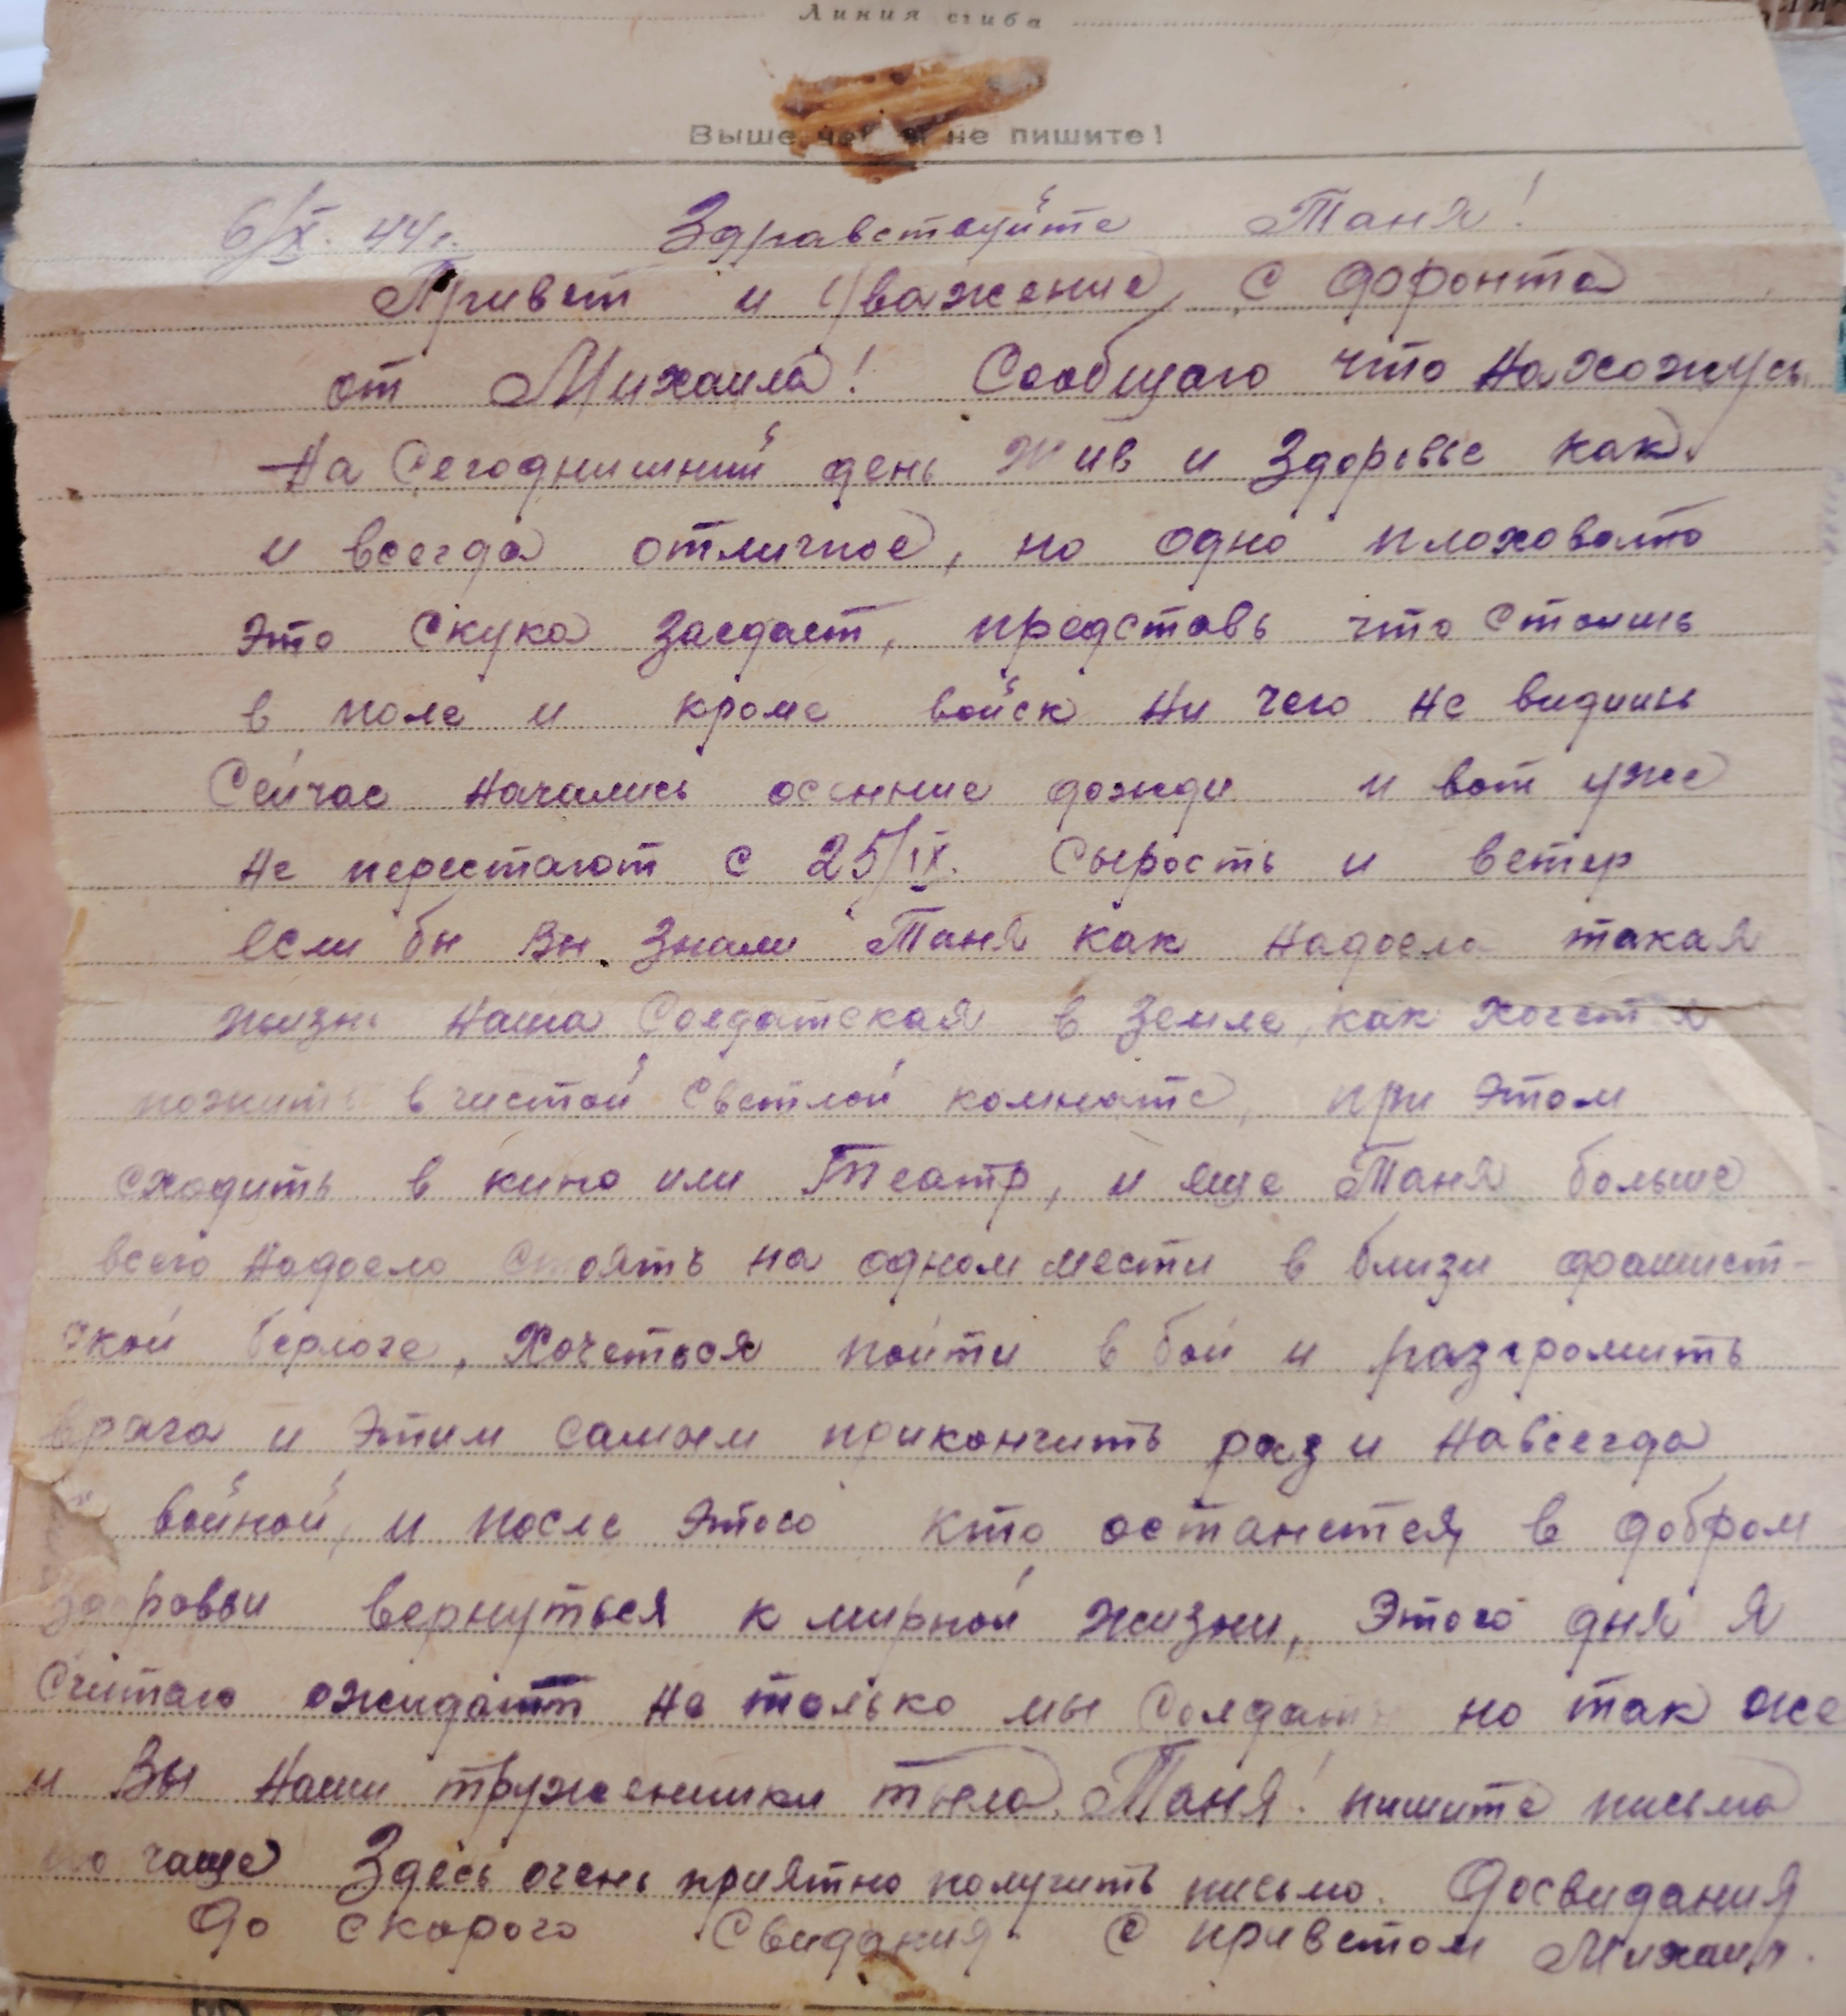 Линия сгиба
Выше не пишите!
6/X. 44г. Здравствуйте Таня!
Привет и Уважение с фронта
от Михаила! Сообщаю что нахожусь
На Сегоднишний день Жив и Здоровье как
и всегда отличное, но одно плоховато
это Скука заедает, представь что Стоишь
в поле и кроме войск Ни чего не видишь
Сейчас начались осенние дожди и вот уже
не перестают с 25/IX. Сырость и ветер
если бы Вы Знали Таня как надоела такая
жизнь наша Солдатская в Земле, как хочется
пожить в чистой Светлой комнате, при этом
сходить в кино или Театр, и еще Таня больше
всего надоело Стоять на одном мести в близи фашист-
ской берлоге, Хочеться пойти в бой и разгромить
врага и Этим самым прикончить раз и навсегда
войной, и после этого кто останется в добром
Здоровьи вернуться к мирной жизни, Этого дня я
Считаю ожидают не только мы Солдаты но так же
и Вы наши труженники тыла. Таня! пишите письма
по чаще Здесь очень приятно получить письмо. Досвидания
До скорого Свидания. С приветом Михаил.